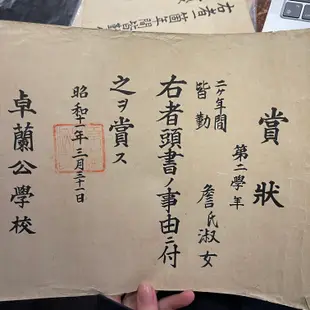 賞狀
第二學年
詹氏淑女
二ヶ年間
皆勤
右者頭書ノ事由ニ付
之ヲ賞ス
昭和十一年三月三十一日
卓蘭公學校